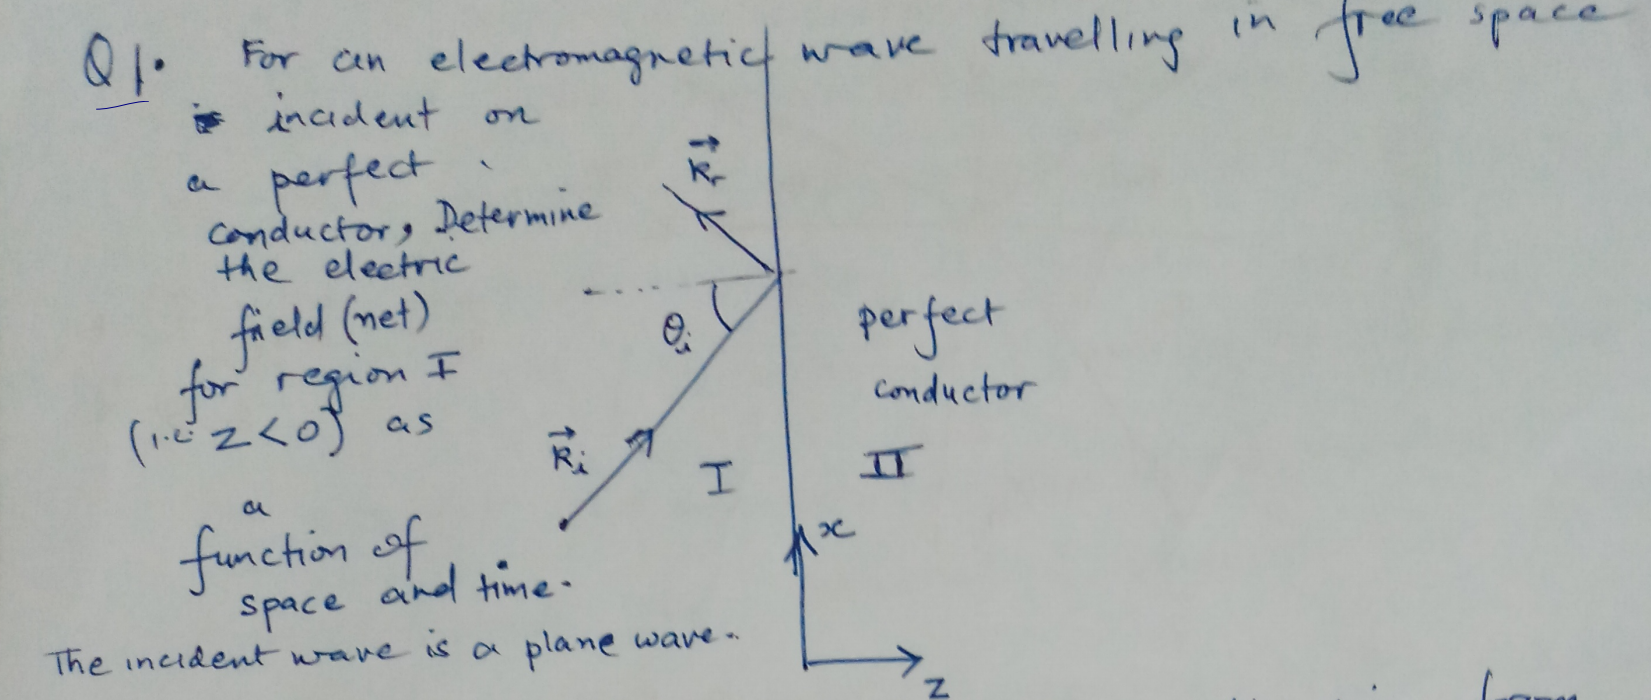 Q1. For an electromagnetic wave travelling in free space
is incident on
a perfect
conductor, Determine
the electric
field (net)
for region I
(i.e. z<0) as
a
function of
space and time.
The incident wave is a plane wave.
k⃗r
θi
k⃗i
I
perfect
conductor
II
x
z